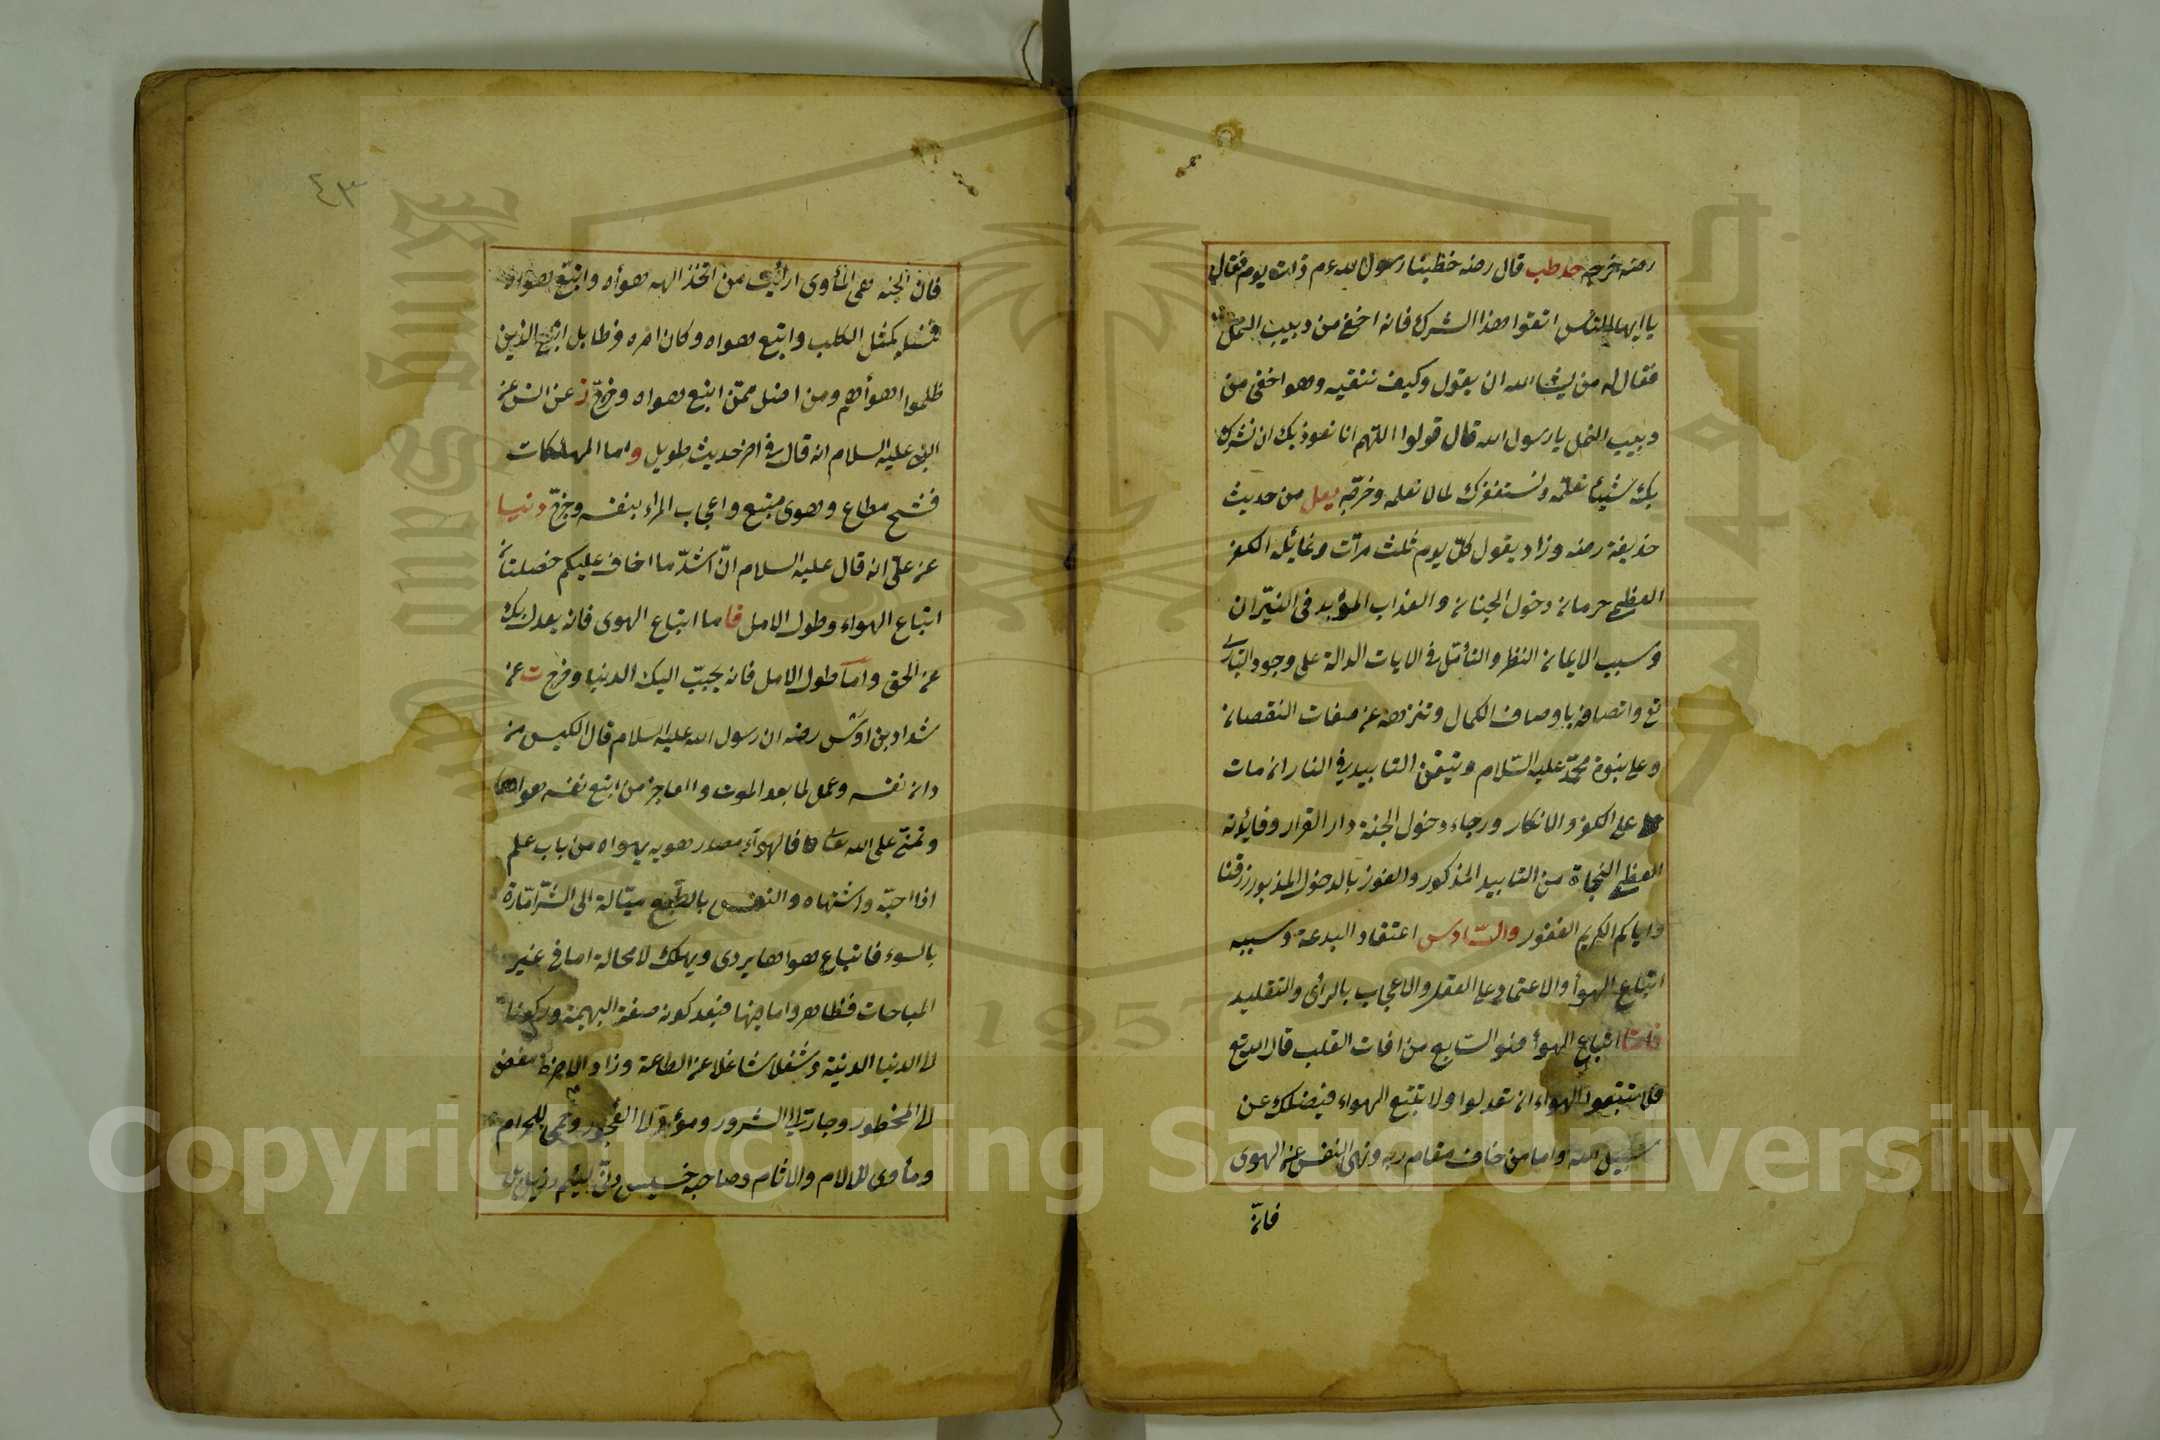 رضه خرجه حد طب قال رضه خطبنا رسول الله عم ذات يوم فقال
يا ايها الناس اتقوا هذا الشرك فانه اخفى من دبيب النمل
فقال له من يشا الله ان يقول وكيف نتقيه وهو اخفى من
دبيب النمل يا رسول الله قال قولوا اللهم انا نعوذ بك ان نشرك
بك شيئا نعلمه ونستغفرك لما لا نعلمه وخرجه يعل من حديث
حذيفة رضه وزاد يقول كل يوم ثلث مرات وغائلة الكفر
العظمى حرمان دخول الجنان والعذاب المؤبد فى النيران
وسبب الايمان النظر والتأمل فى الايات الدالة على وجود البارى
تع واتصافه باوصاف الكمال وتنزهه عن صفات النقصان
وعلى نبوة محمد عليه السلام وتيقن التابيد فى النار ان مات
على الكفر والانكار ورجاء دخول الجنة دار القرار وفايدته
العظمى النجاة من التابيد المذكور والفوز بالدخول المذبور رزقنا
واياكم الكريم الغفور والسادس اعتقاد البدعة وسببه
اتباع الهوأ والاعتماد على العقل والاعجاب بالرأى والتقليد
فاما اتباع الهوأ فهو السابع من افات القلب قال الله تع
فلا تتبعوا الهواء ان تعدلوا ولا تتبع الهواء فيضلك عن
سبيل الله واما من خاف مقام ربه ونهى النفس عن الهوى
فان
٤٣
فان الجنه هى المأوى ارايت من اتخذ الهه هوأه واتبع هواه
فمثله كمثل الكلب واتبع هواه وكان امره فرطا بل اتبع الذين
ظلموا اهوأهم ومن اضل ممن اتبع هواه وخرج ز عن انس عن
النبى عليه السلام انه قال فى اخر حديث طويل واما المهلكات
فشح مطاع وهوى متبع واعجاب المراء بنفسه وخرج دنيا
عن على انه قال عليه السلام ان اشد ما اخاف عليكم خصلتان
اتباع الهواء وطول الامل فاما اتباع الهوى فانه يعدل بك
عن الحق واما طول الامل فانه يحبب اليك الدنيا وخرج ت عن
شداد بن اوس رضه ان رسول الله عليه السلام قال الكيس من
دان نفسه وعمل لما بعد الموت والعاجز من اتبع نفسه هواها
وتمنى على الله تعالى فالهواء مصدر هويه يهواه من باب علم
اذا احبه واشتهاه والنفس بالطبع ميالة الى الشر امارة
بالسوء فاتباع هواها يردى ويهلك لا محالة اما فى غير
المباحات فظاهر واما فيها فبعد كونه صفة البهيمة وركونا
الى الدنيا الدنية وشغلا شاغلا عن الطاعة وزاد الاخرة مفض
الى المحظور وجار الى الشرور ومؤد الى الفجور وحمى للحرام
ومأوى للالام والاثام وصاحبه خسيس دنى لئيم رذيل
Copyright © King Saud University
King Saud University
1957